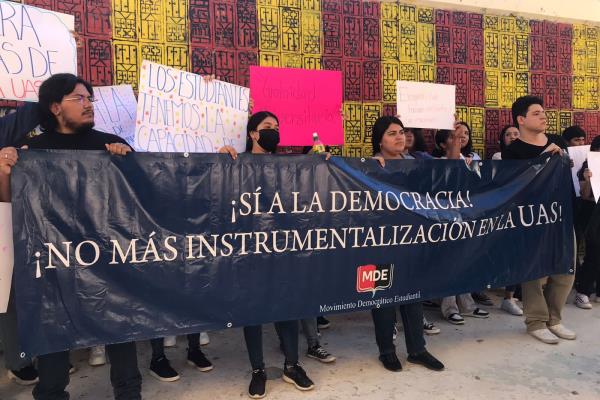 RA
AS DE
LOS ESTUDIANTES
TENEMOS LA
CAPACIDAD
¡SÍ A LA DEMOCRACIA!
¡NO MÁS INSTRUMENTALIZACIÓN EN LA UAS!
MDE
Movimiento Democrático Estudiantil